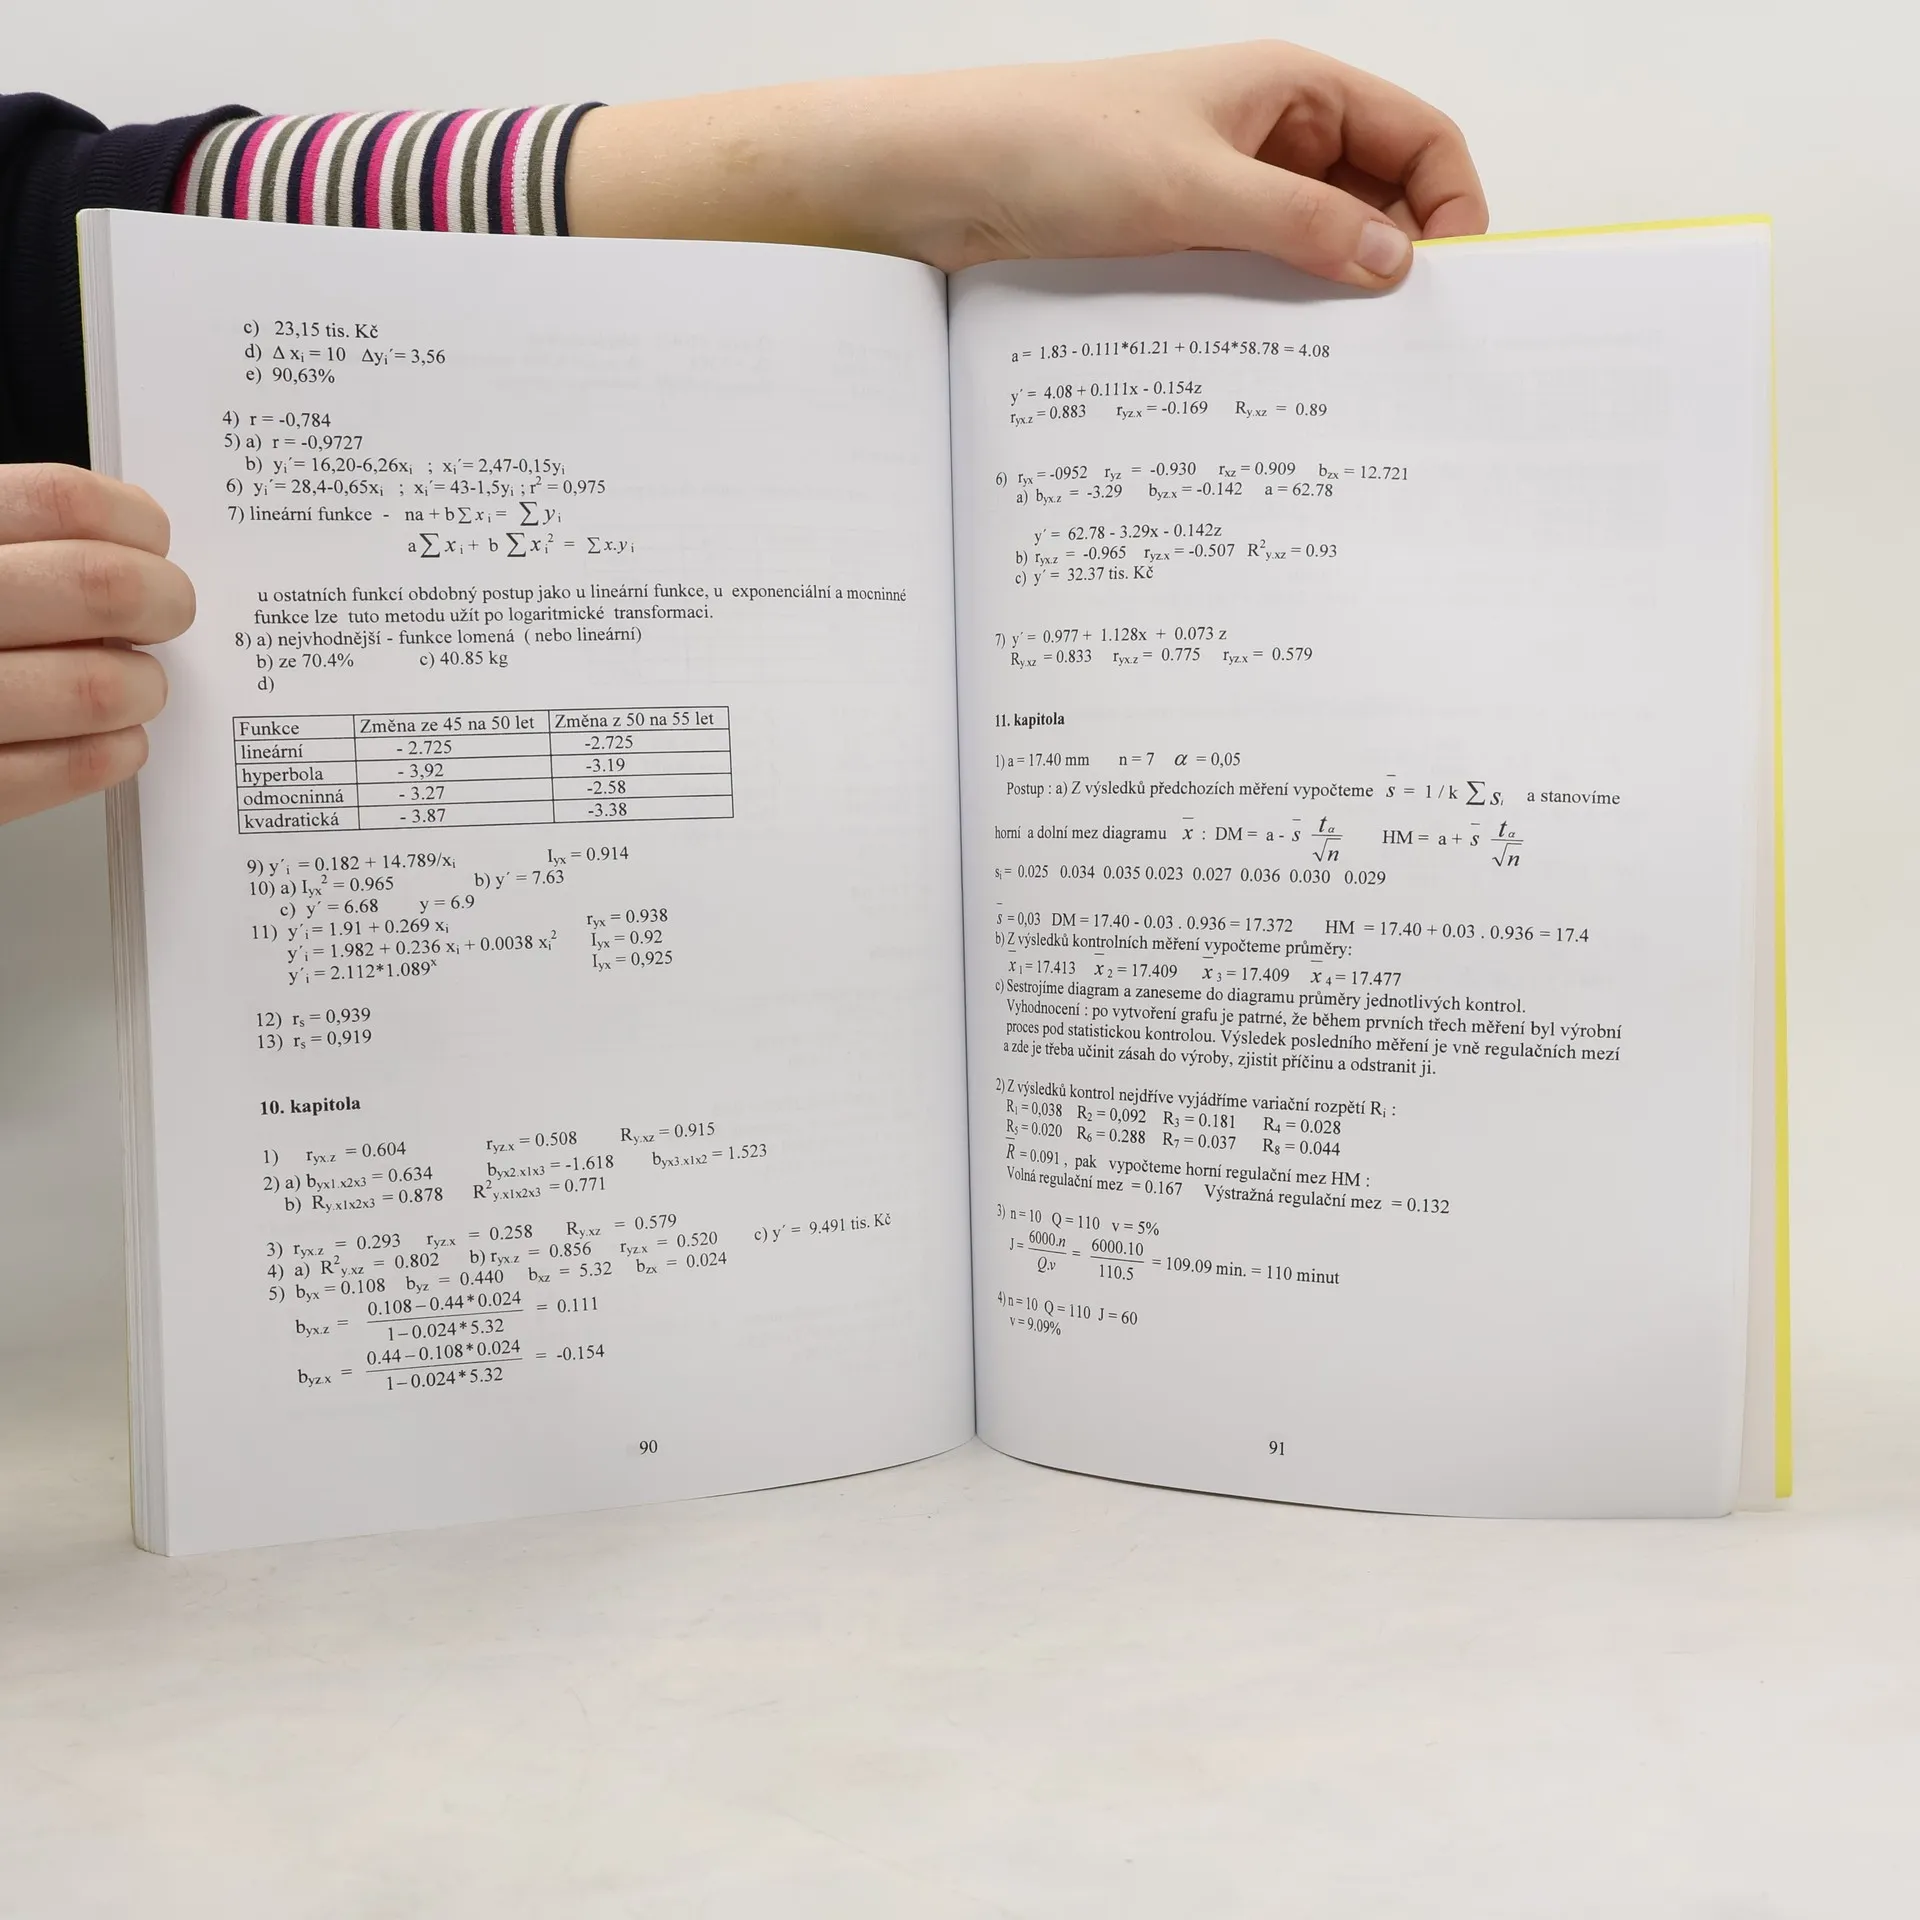 c) 23,15 tis. Kč
d) Δ xᵢ = 10 Δyᵢ´= 3,56
e) 90,63%
4) r = -0,784
5) a) r = -0,9727
b) yᵢ´= 16,20-6,26xᵢ ; xᵢ´= 2,47-0,15yᵢ
6) yᵢ´= 28,4-0,65xᵢ ; xᵢ´= 43-1,5yᵢ ; r² = 0,975
7) lineární funkce - na + b∑xᵢ = ∑yᵢ
a∑xᵢ + b ∑xᵢ² = ∑x.yᵢ
u ostatních funkcí obdobný postup jako u lineární funkce, u exponenciální a mocninné
funkce lze tuto metodu užít po logaritmické transformaci.
8) a) nejvhodnější - funkce lomená ( nebo lineární)
b) ze 70.4% c) 40.85 kg
d)
Funkce Změna ze 45 na 50 let Změna z 50 na 55 let
lineární - 2.725 -2.725
hyperbola - 3,92 -3.19
odmocninná - 3.27 -2.58
kvadratická - 3.87 -3.38
9) y´ᵢ = 0.182 + 14.789/xᵢ Iyx = 0.914
10) a) Iyx² = 0.965 b) y´ = 7.63
c) y´ = 6.68 y = 6.9
11) y´ᵢ = 1.91 + 0.269 xᵢ ryx = 0.938
y´ᵢ = 1.982 + 0.236 xᵢ + 0.0038 xᵢ² Iyx = 0.92
y´ᵢ = 2.112*1.089ˣ Iyx = 0,925
12) rs = 0,939
13) rs = 0,919
10. kapitola
1) ryx.z = 0.604 ryz.x = 0.508 Ry.xz = 0.915
2) a) byx1.x2x3 = 0.634 byx2.x1x3 = -1.618 byx3.x1x2 = 1.523
b) Ry.x1x2x3 = 0.878 R²y.x1x2x3 = 0.771
3) ryx.z = 0.293 ryz.x = 0.258 Ry.xz = 0.579
4) a) R²y.xz = 0.802 b) ryx.z = 0.856 ryz.x = 0.520 c) y´ = 9.491 tis. Kč
5) byx = 0.108 byz = 0.440 bxz = 5.32 bzx = 0.024
byx.z = (0.108 – 0.44 * 0.024) / (1 – 0.024 * 5.32) = 0.111
byz.x = (0.44 – 0.108 * 0.024) / (1 – 0.024 * 5.32) = -0.154
90
a = 1.83 - 0.111*61.21 + 0.154*58.78 = 4.08
y´ = 4.08 + 0.111x - 0.154z
ryx.z = 0.883 ryz.x = -0.169 Ry.xz = 0.89
6) ryx = -0952 ryz = -0.930 rxz = 0.909 bzx = 12.721
a) byx.z = -3.29 byz.x = -0.142 a = 62.78
y´ = 62.78 - 3.29x - 0.142z
b) ryx.z = -0.965 ryz.x = -0.507 R²y.xz = 0.93
c) y´ = 32.37 tis. Kč
7) y´ = 0.977 + 1.128x + 0.073 z
Ry.xz = 0.833 ryx.z = 0.775 ryz.x = 0.579
11. kapitola
1) a = 17.40 mm n = 7 α = 0,05
Postup : a) Z výsledků předchozích měření vypočteme s̄ = 1 / k ∑ sᵢ a stanovíme
horní a dolní mez diagramu x̄ : DM = a - s̄ tα/√n HM = a + s̄ tα/√n
sᵢ = 0.025 0.034 0.035 0.023 0.027 0.036 0.030 0.029
s̄ = 0,03 DM = 17.40 - 0.03 . 0.936 = 17.372 HM = 17.40 + 0.03 . 0.936 = 17.4
b) Z výsledků kontrolních měření vypočteme průměry:
x̄₁ = 17.413 x̄₂ = 17.409 x̄₃ = 17.409 x̄₄ = 17.477
c) Sestrojíme diagram a zaneseme do diagramu průměry jednotlivých kontrol.
Vyhodnocení : po vytvoření grafu je patrné, že během prvních třech měření byl výrobní
proces pod statistickou kontrolou. Výsledek posledního měření je vně regulačních mezí
a zde je třeba učinit zásah do výroby, zjistit příčinu a odstranit ji.
2) Z výsledků kontrol nejdříve vyjádříme variační rozpětí Rᵢ :
R₁ = 0,038 R₂ = 0,092 R₃ = 0.181 R₄ = 0.028
R₅ = 0.020 R₆ = 0.288 R₇ = 0.037 R₈ = 0.044
R̄ = 0.091 , pak vypočteme horní regulační mez HM :
Volná regulační mez = 0.167 Výstražná regulační mez = 0.132
3) n = 10 Q = 110 v = 5%
J = 6000.n / Q.v = 6000.10 / 110.5 = 109.09 min. = 110 minut
4) n = 10 Q = 110 J = 60
v = 9.09%
91